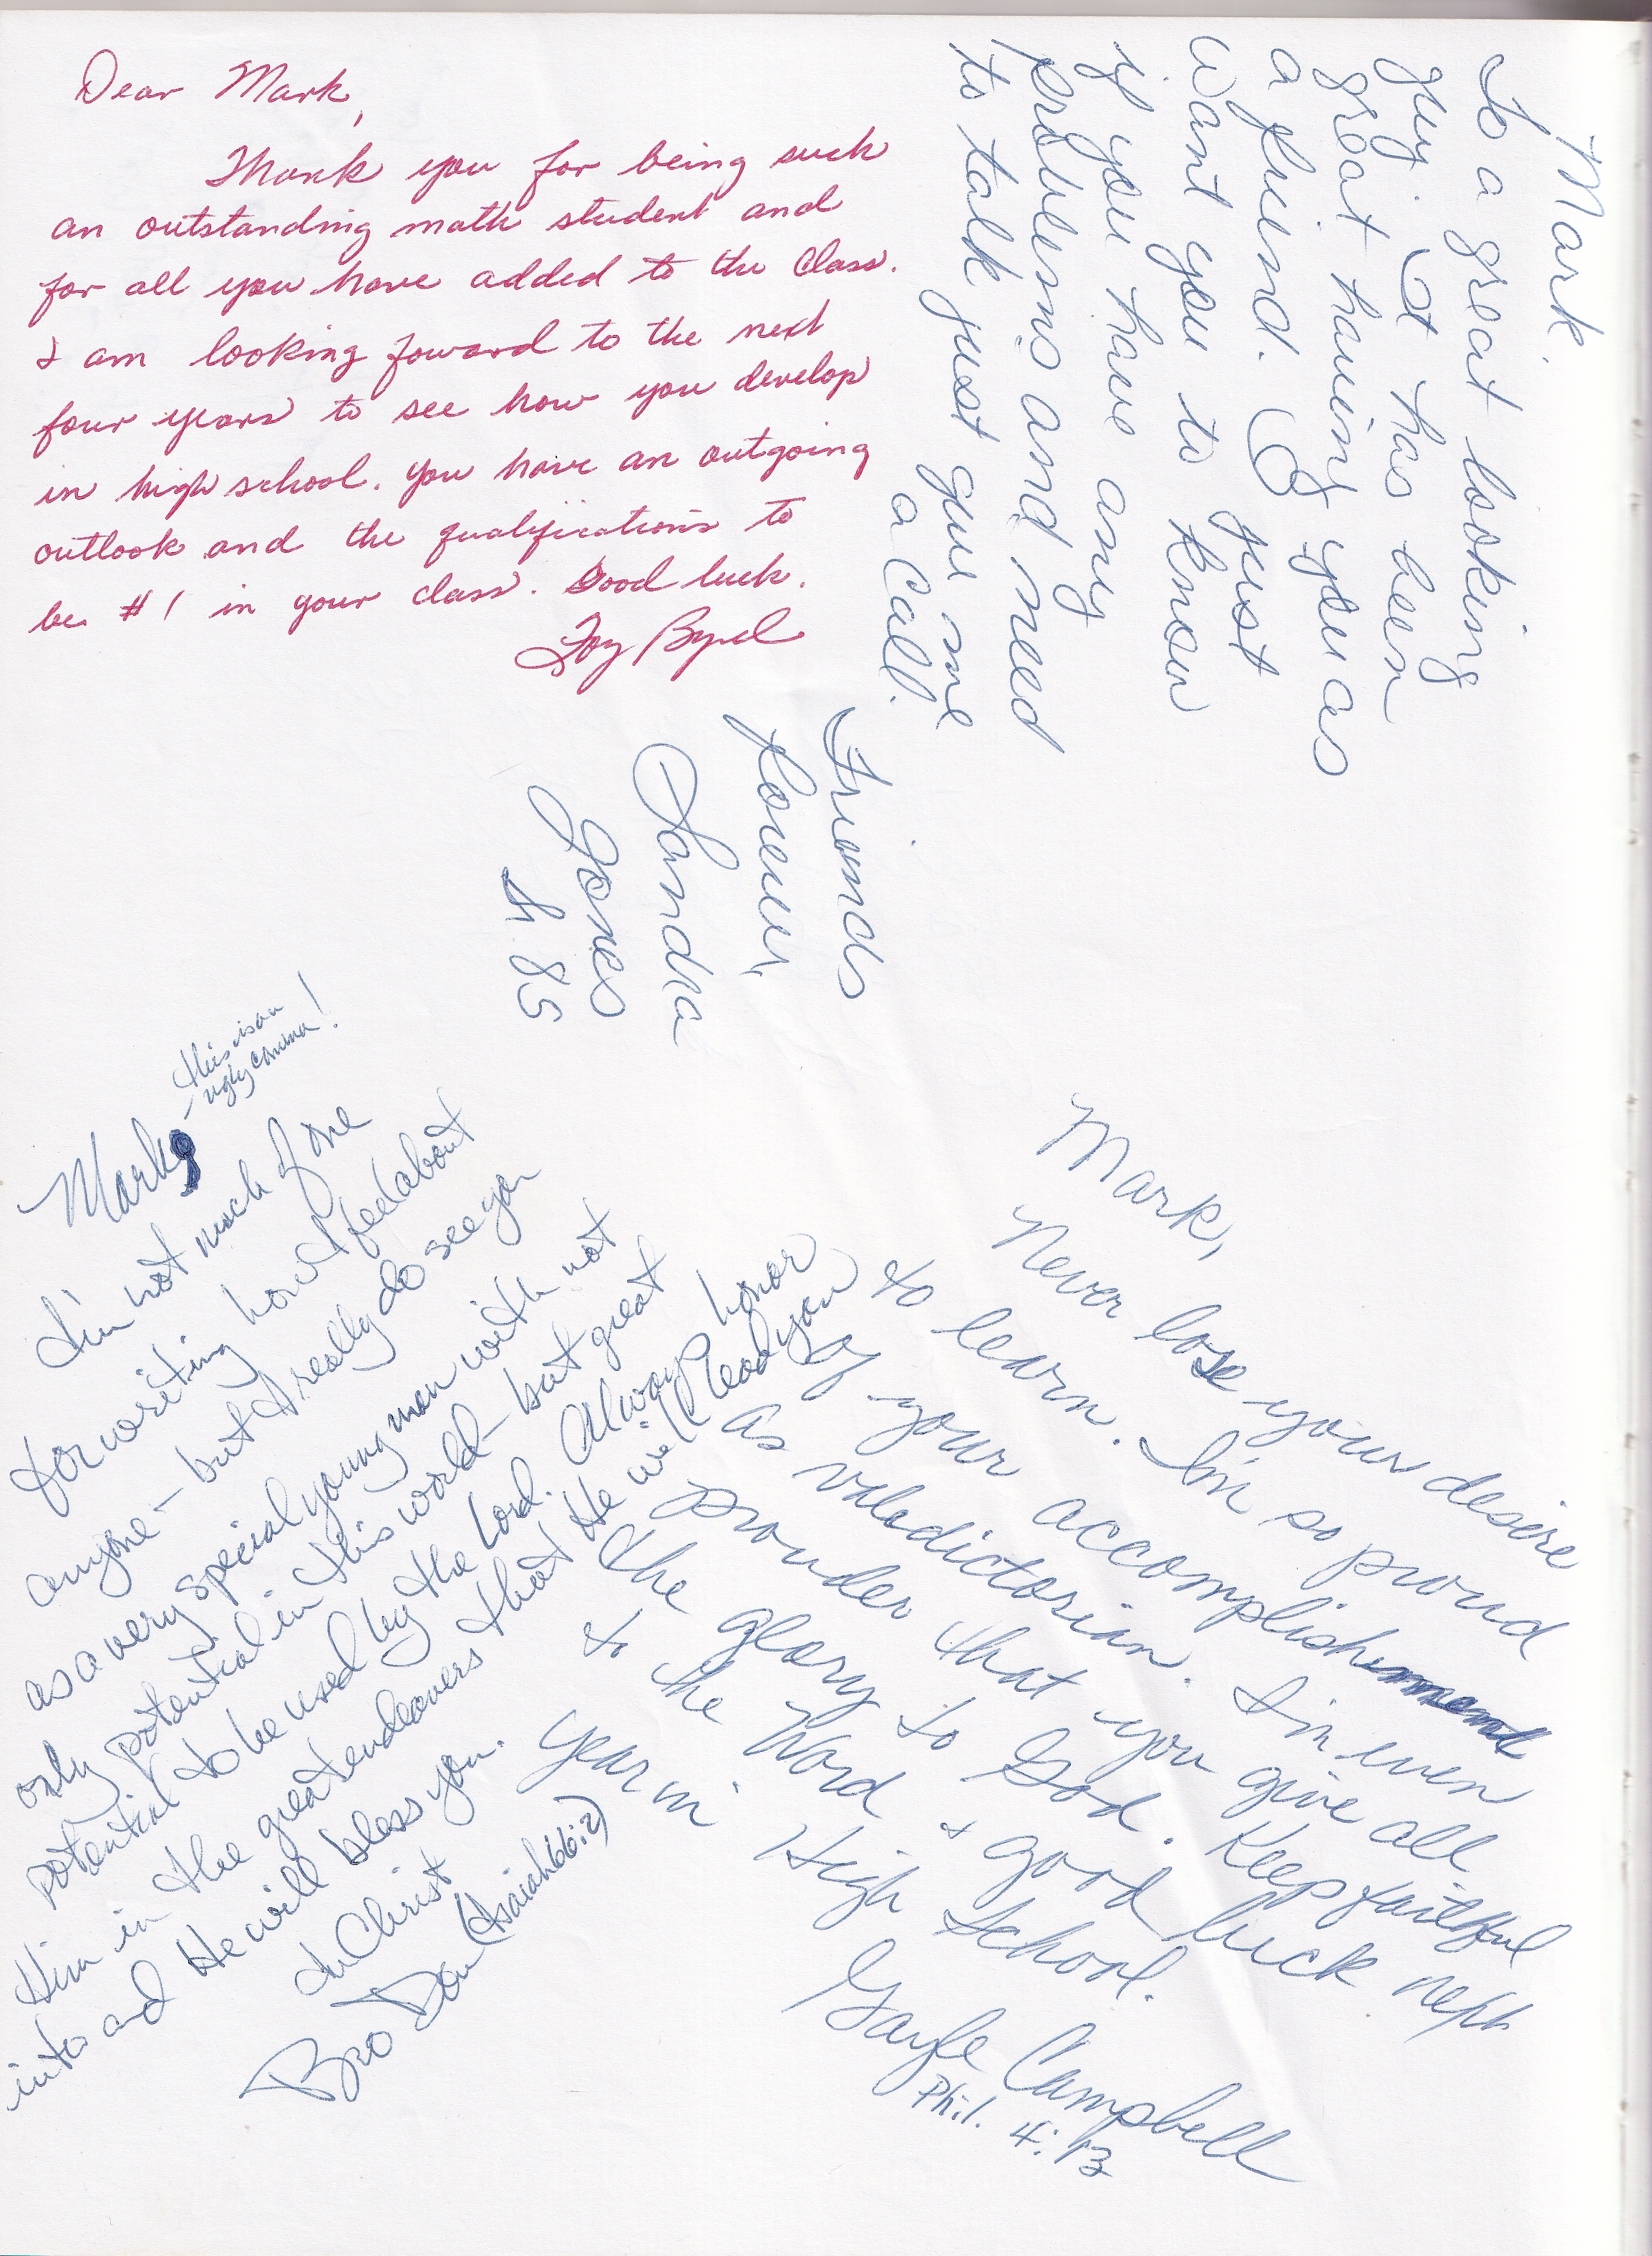 Dear Mark,
Thank you for being such
an outstanding math student and
for all you have added to the class.
I am looking foward to the next
four years to see how you develop
in high school. You have an outgoing
outlook and the qualifications to
be #1 in your class. Good luck.
Byrd
Mark
To a great looking
guy. It has been
great having you as
a friend. I just
want you to know
if you have any
problems and need
to talk just give me
a call.
Friends
forever,
Sandra
Jones
85
Mark,
this is an
ugly comma!
I'm not much of one
for writing how I feel about
anyone - but I really do see you
as a very special young man with not
only potential in this world - but great
potential to be used by the Lord. Always honor
Him in the great endeavors that He will lead you
into and He will bless you.
In Christ
Bro Don (Isaiah 66:2)
Mark,
Never lose your desire
to learn. I'm so proud
of your accomplishment
as valedictorian. I'm even
prouder that you give all
the glory to God. Keep faithful
to the Word & good luck next
year in High School.
Gayle Campbell
Phil. 4:13